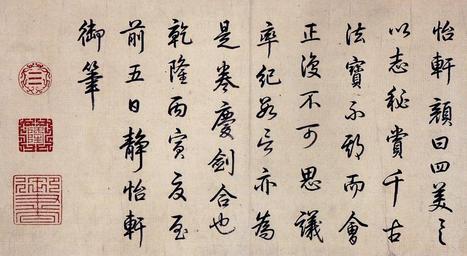 怡軒顏曰四美具
以志秘賞千古
法寶不期而會
正復不可思議
率紀數言亦為
是卷慶劍合也
乾隆丙寅夏至
前五日靜怡軒
御筆